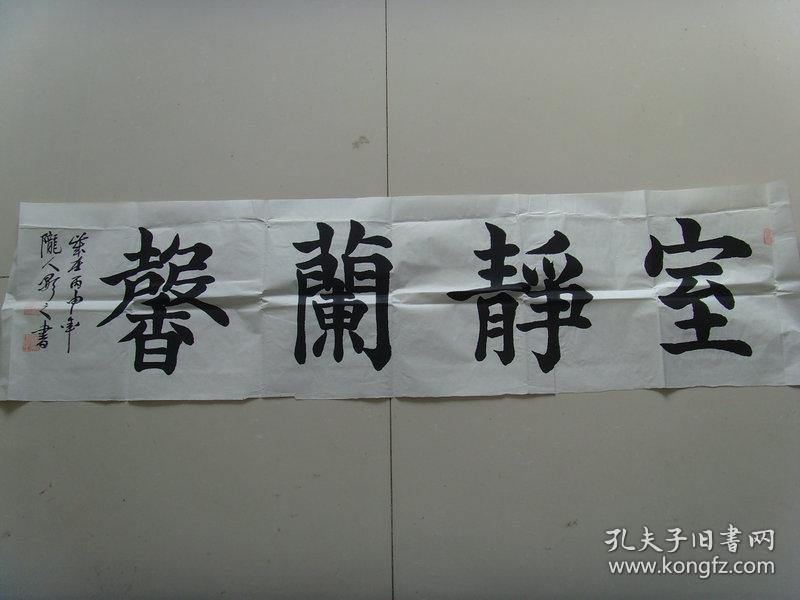 室靜蘭馨
歲在丙申年
隴人
之書
孔夫子旧书网
www.kongfz.com